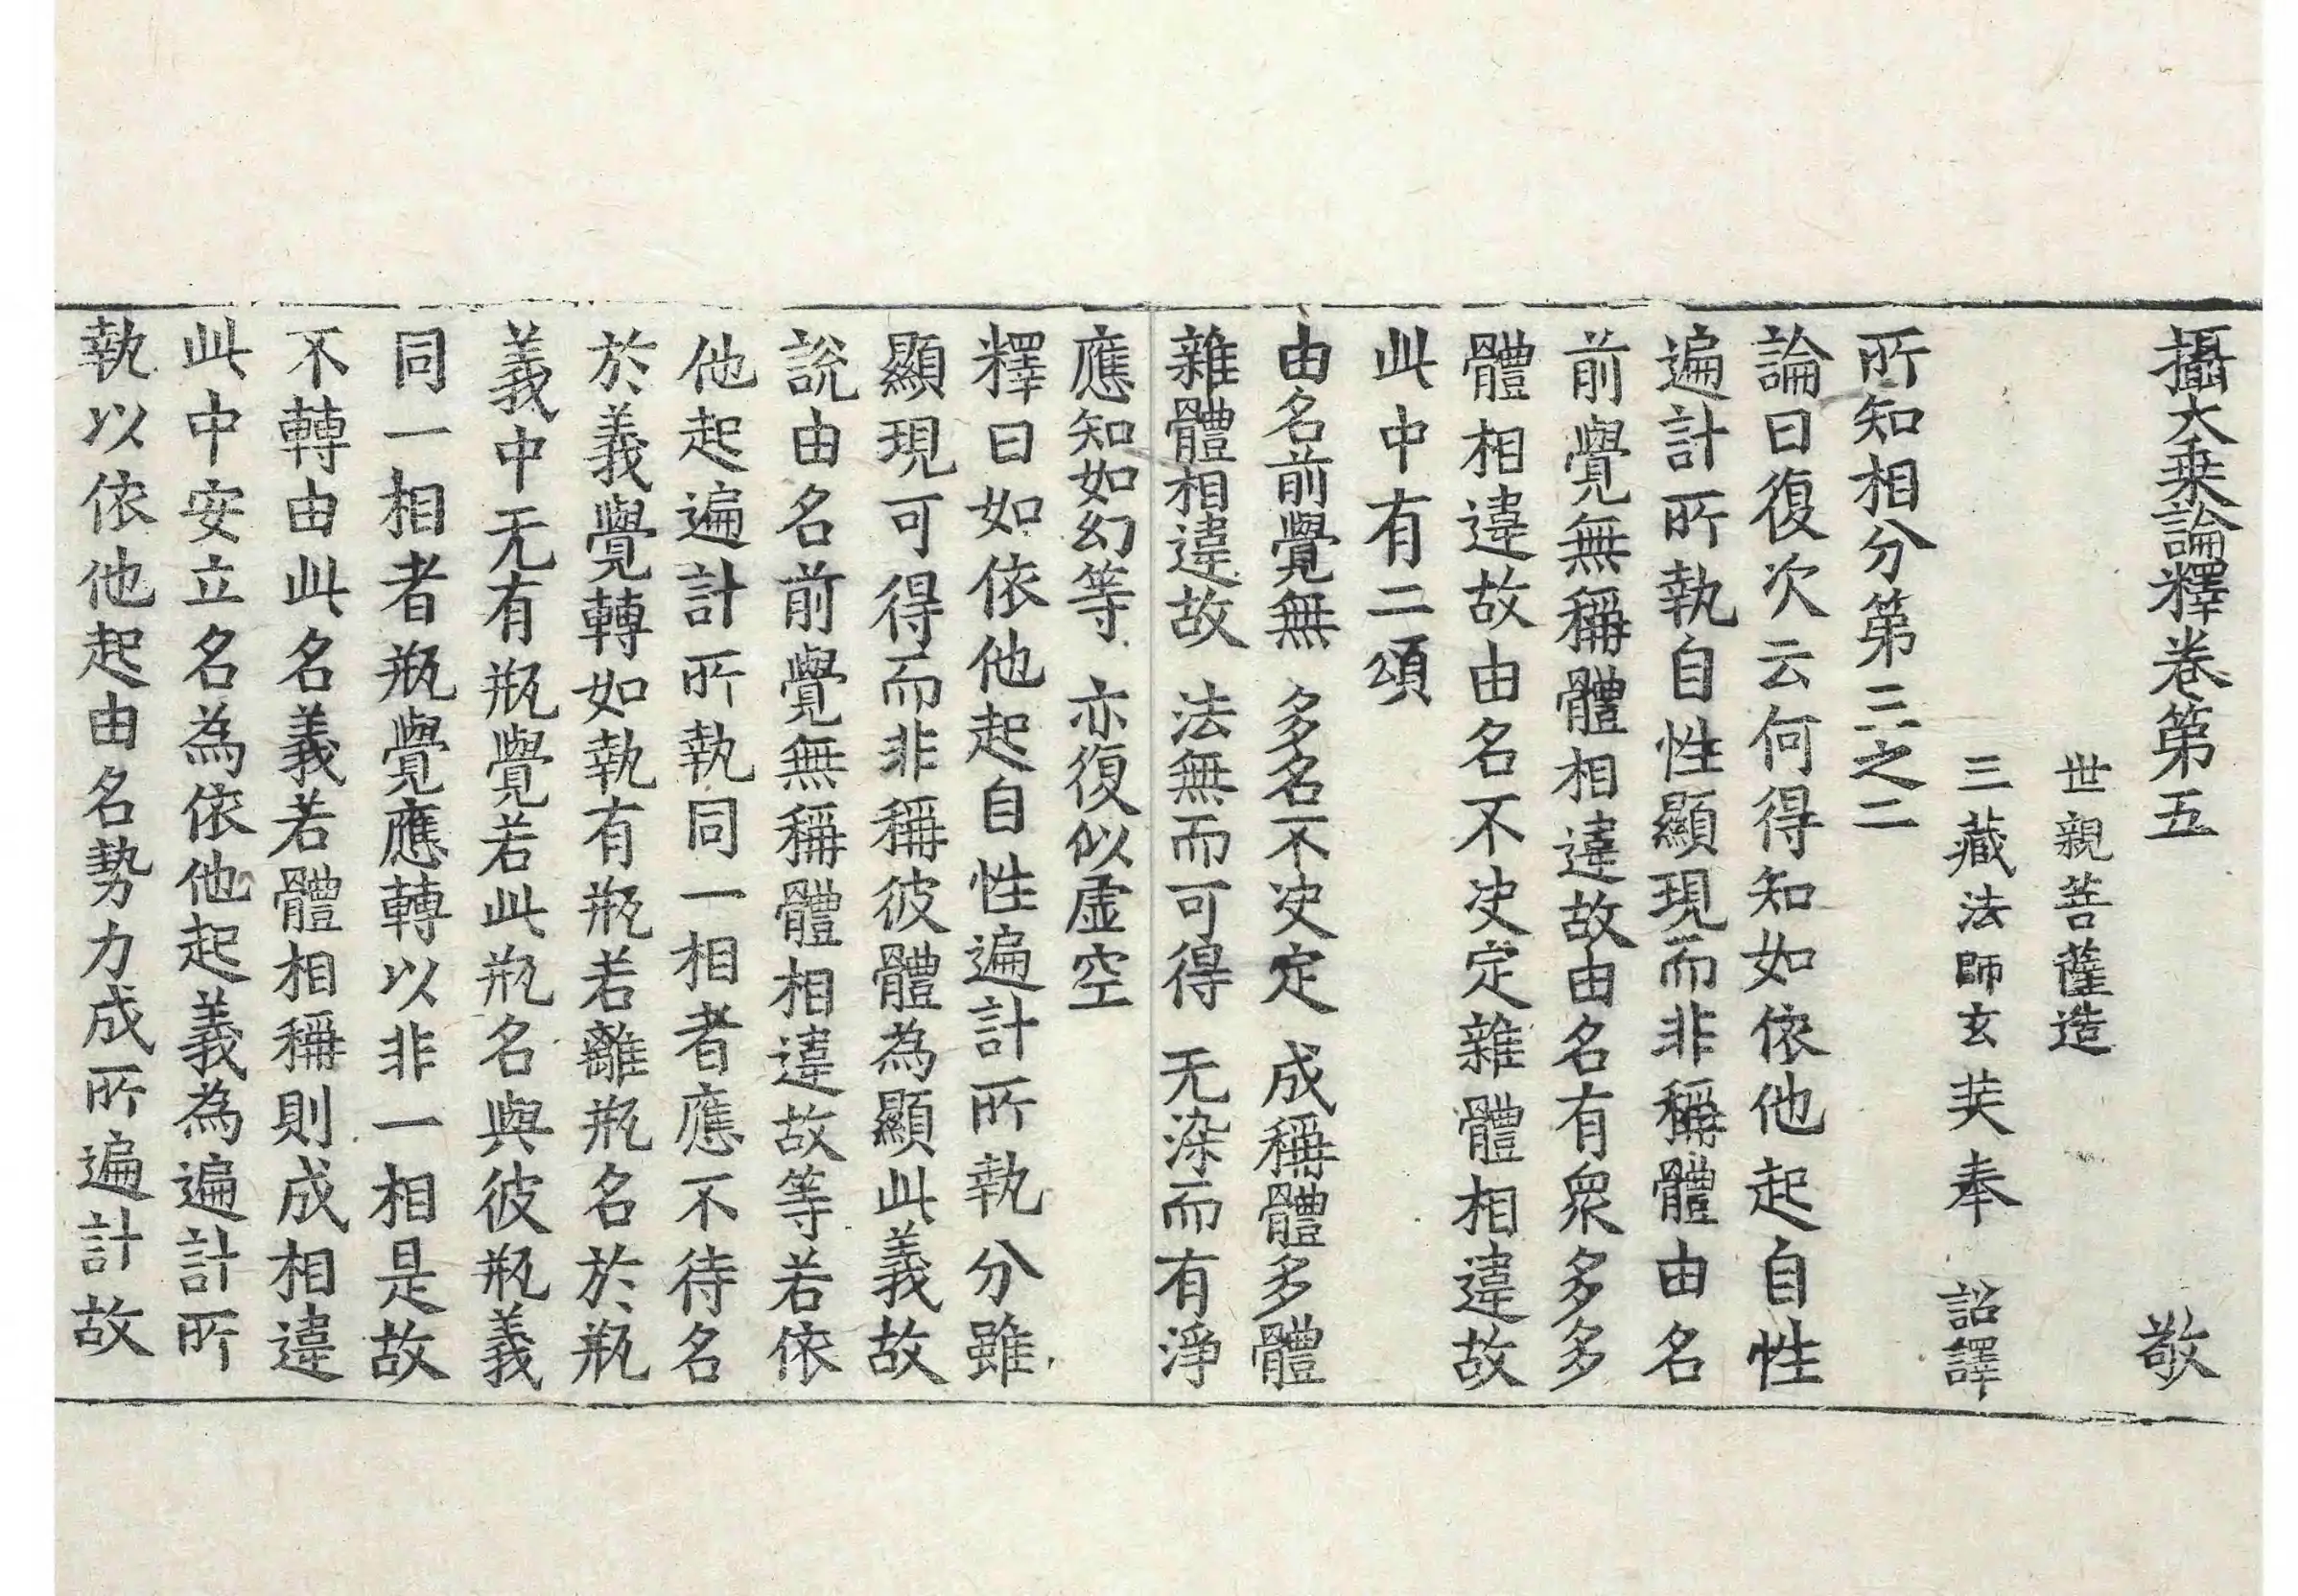 攝大乗論釋卷第五 敬
世親菩薩造
三藏法師玄奘奉 詔譯
所知相分第三之二
論曰復次云何得知如依他起自性
遍計所執自性顯現而非稱體由名
前覺無稱體相違故由名有衆多多
體相違故由名不决定雜體相違故
此中有二頌
由名前覺無 多名不决定 成稱體多體
雜體相違故 法無而可得 无染而有淨
應知如幻等 亦復似虚空
釋曰如依他起自性遍計所執分雖
顯現可得而非稱彼體為顯此義故
說由名前覺無稱體相違故等若依
他起遍計所執同一相者應不待名
於義覺轉如執有瓶若離瓶名於瓶
義中无有瓶覺若此瓶名與彼瓶義
同一相者瓶覺應轉以非一相是故
不轉由此名義若體相稱則成相違
此中安立名為依他起義為遍計所
執以依他起由名勢力成所遍計故